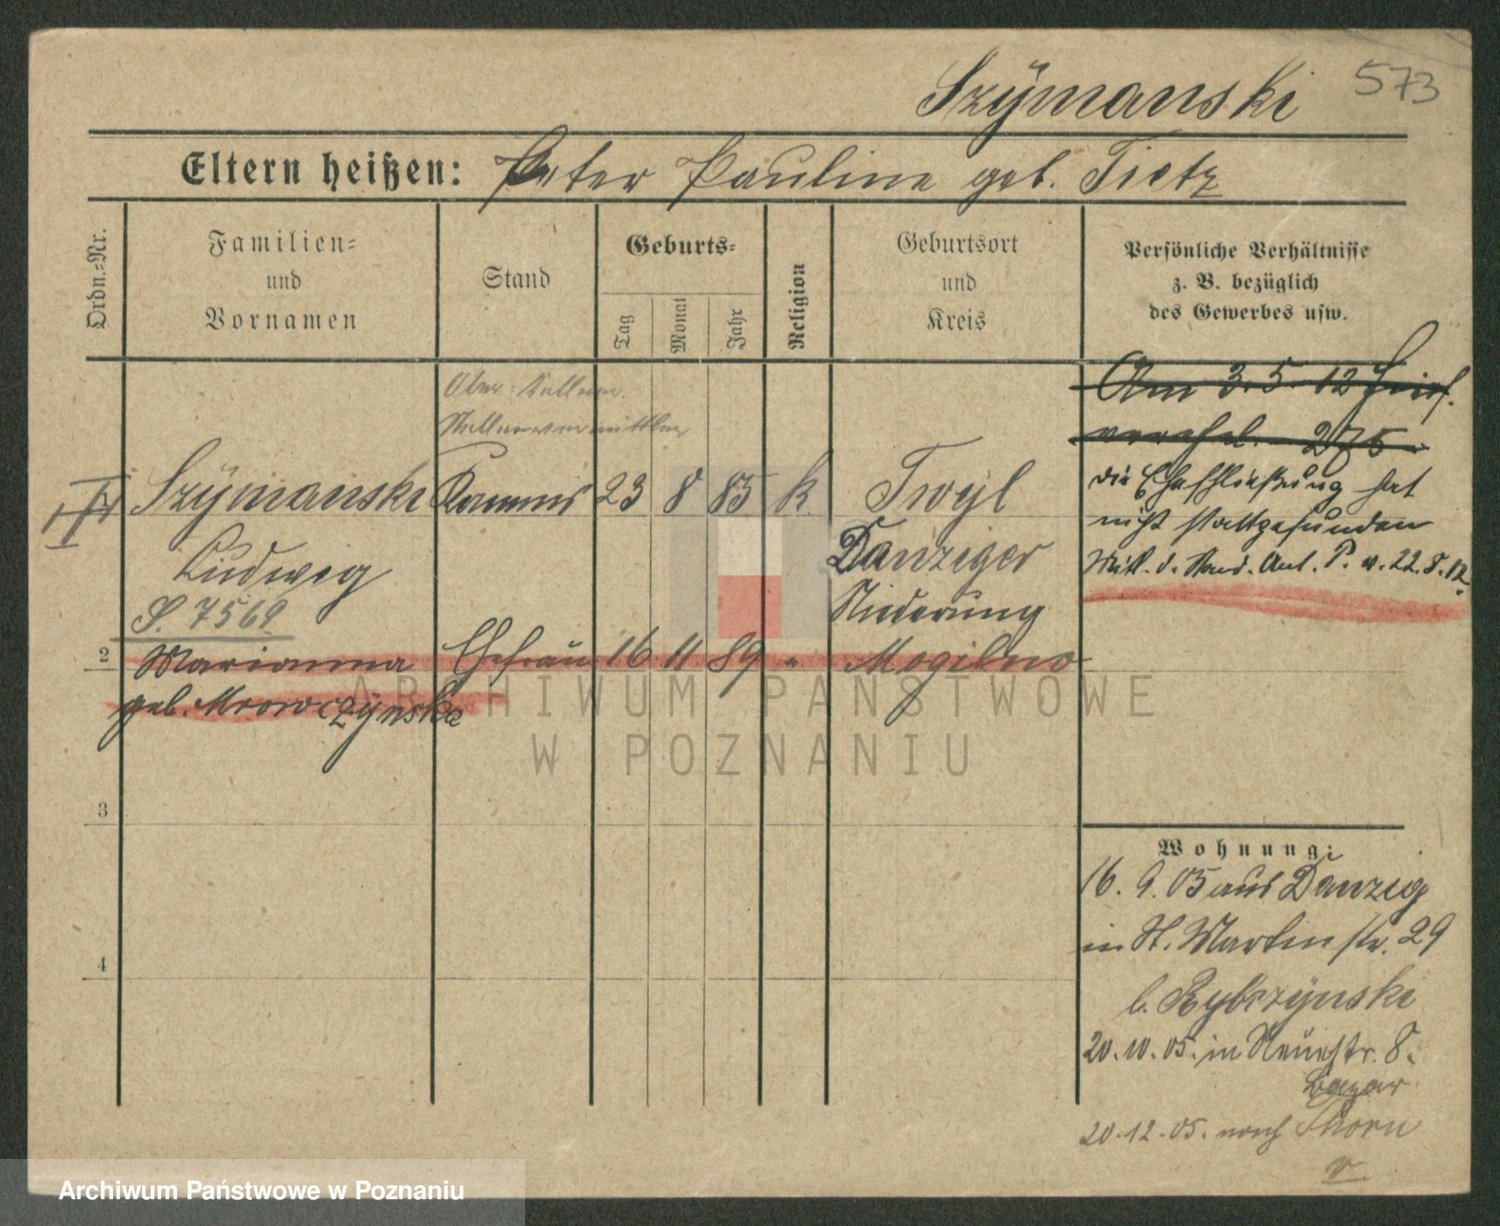 Szÿmanski 573
Eltern heißen: Peter Pauline geb. Tietz
Ordn.=Nr.
Familien=
und
Vornamen
Stand
Geburts=
Tag
Monat
Jahr
Religion
Geburtsort
und
Kreis
Persönliche Verhältnisse
z. B. bezüglich
des Gewerbes usw.
Ober-Kellner.
Kellnervermittler
Am 3. 5. 12
275
Szÿmanski Kommis 23 8 85 k. Troyl
Ludwig
Danziger
Niederung
S. 7569
die Eheschließung hat
nicht stattgefunden
Mitt. d. Stand. Amt. P. v. 22.8.12.
2 Marianna Ehefrau 16 11 89 " Mogilno
geb. Mrowczÿnska
3
4
Wohnung:
16. 9. 05 aus Danzig
in St. Martinstr. 29
b. Rybczÿnski
20.10.05. in Neuestr. 8.
Bazar
20.12.05. nach Thorn
ARCHIWUM PAŃSTWOWE
W POZNANIU
Archiwum Państwowe w Poznaniu